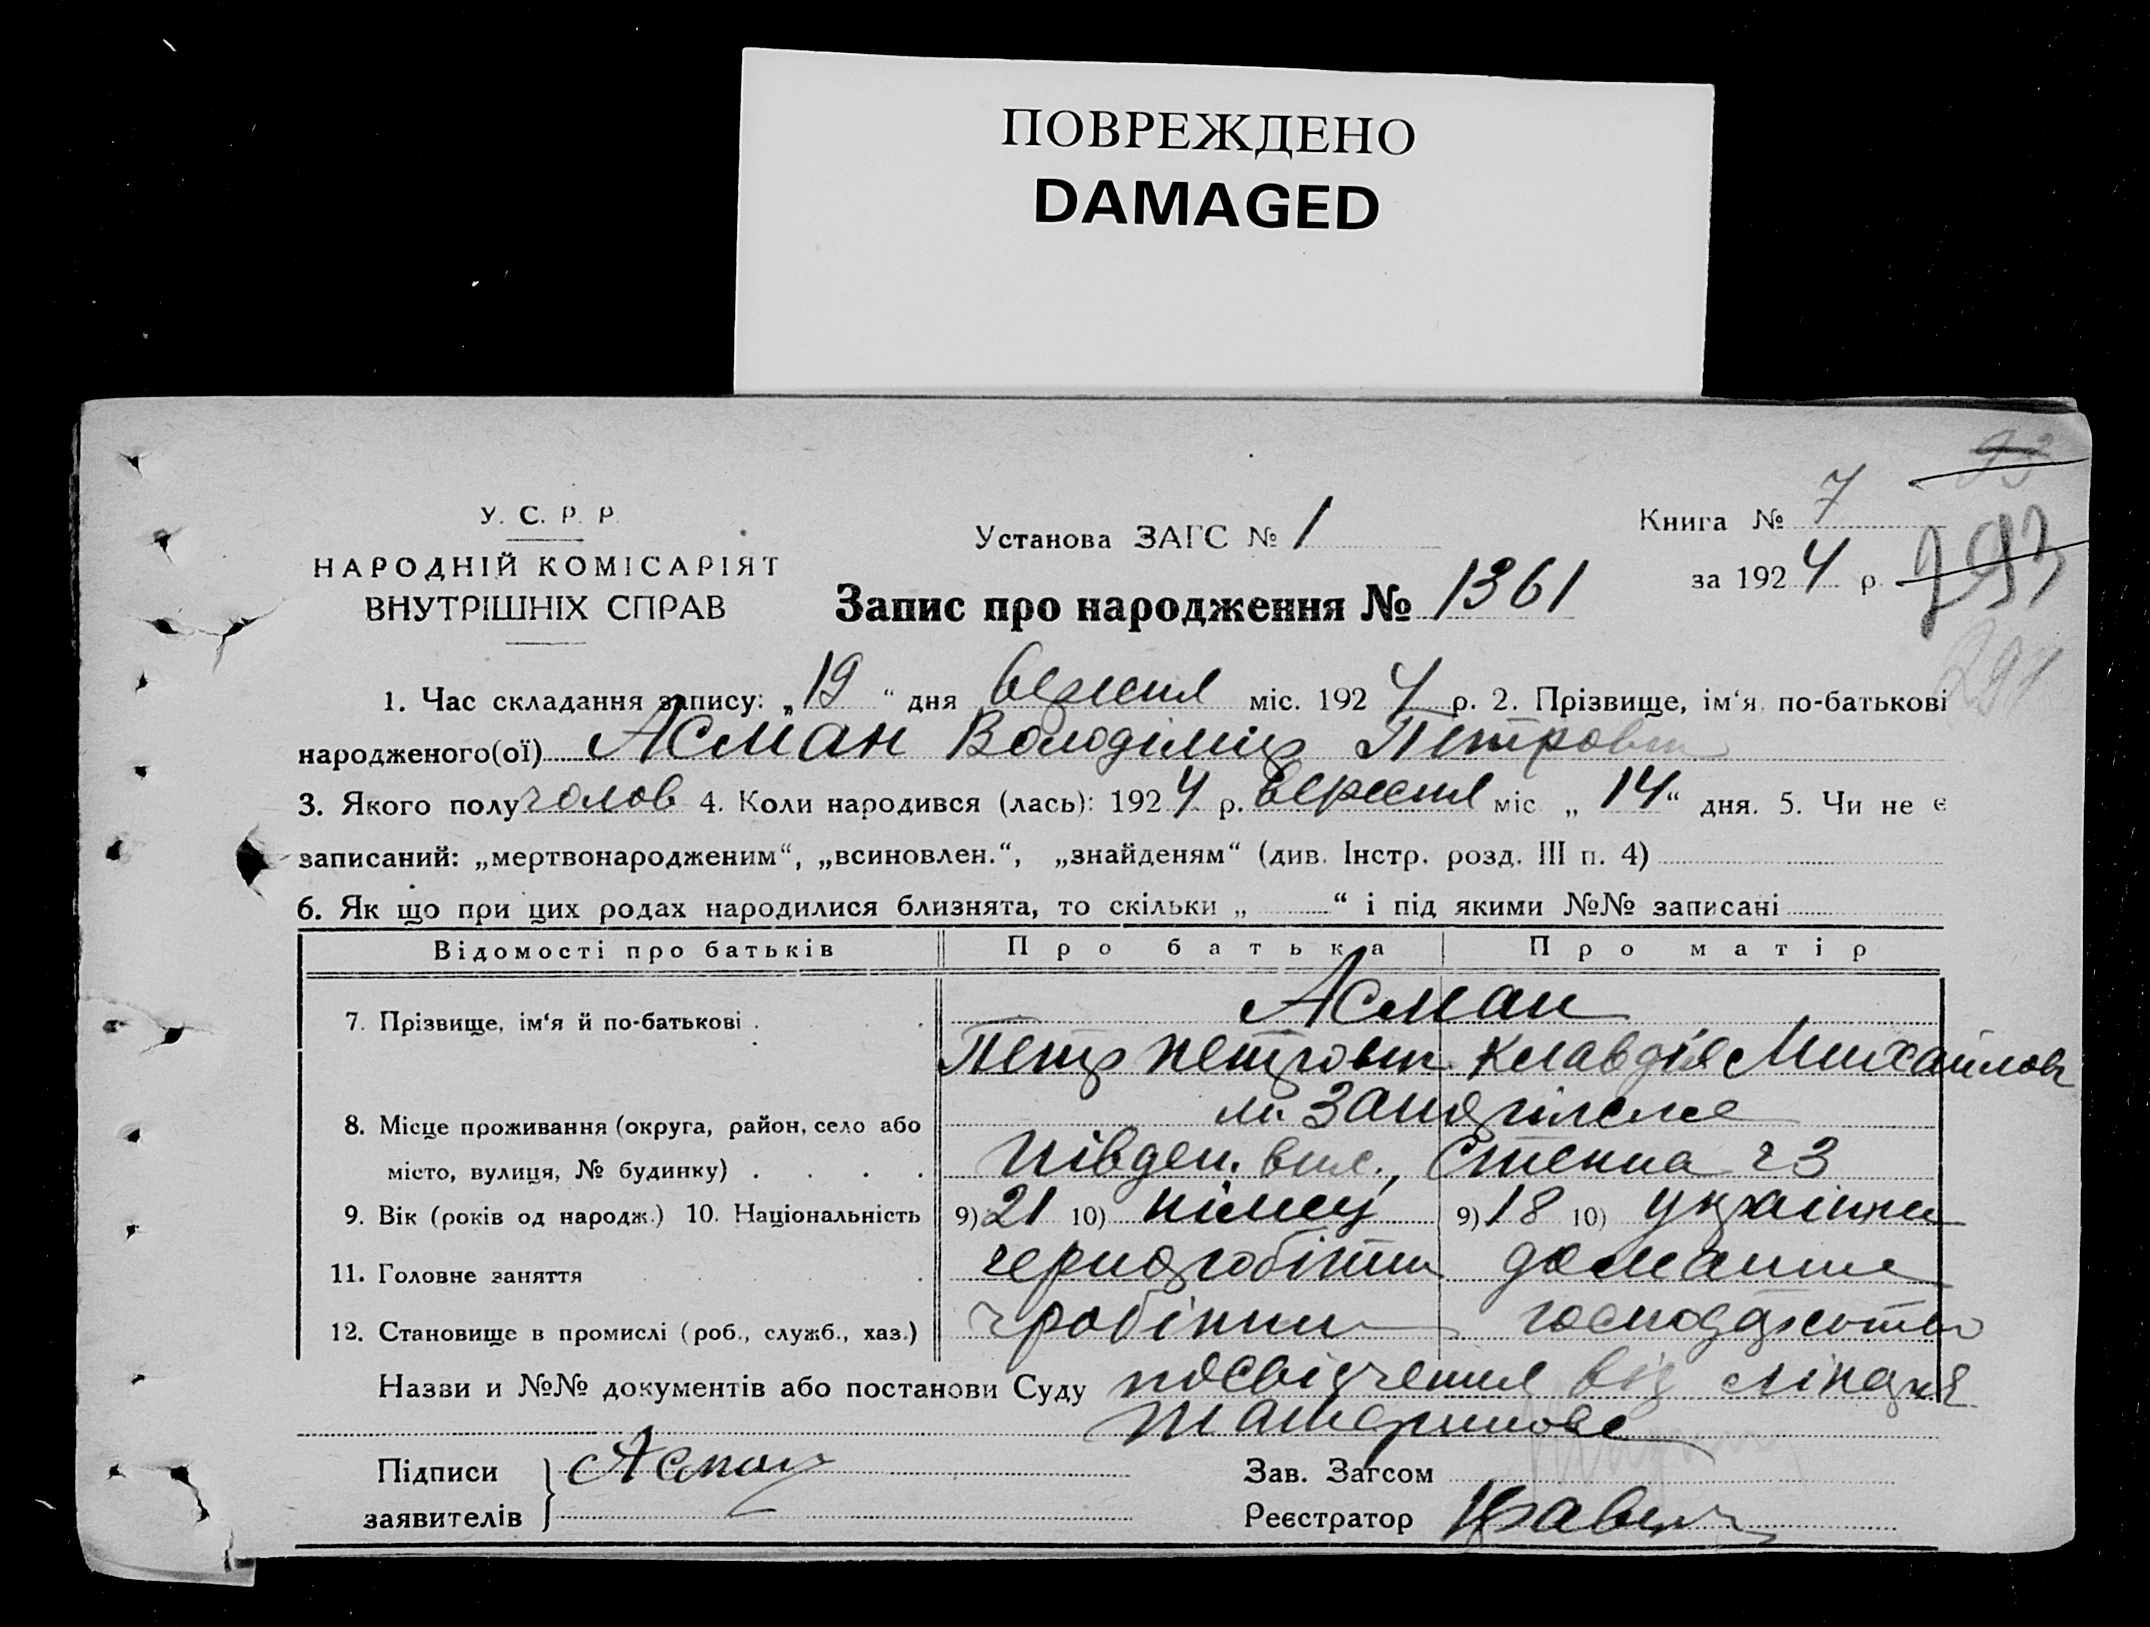 ПОВРЕЖДЕНО
DAMAGED
93
У. С. Р. Р.
НАРОДНІЙ КОМІСАРІЯТ
ВНУТРІШНІХ СПРАВ
Установа ЗАГС № 1
Книга № 7
за 1924 р.
293
291
Запис про народження № 1361
1. Час складання запису: „19“ дня вересня міс. 1924 р. 2. Прізвище, ім‘я по-батькові
народженого(ої) Асман Володімір Петрович
3. Якого полу чолов 4. Коли народився (лась): 1924 р. вересня міс „14“ дня. 5. Чи не є
записаний: „мертвонародженим“, „всиновлен.“, „знайденям“ (див. Інстр. розд. III п. 4)
6. Як що при цих родах народилися близнята, то скільки „ “ і під якими №№ записані
Відомості про батьків Про батька Про матір
7. Прізвище, ім‘я й по-батькові . . Асман
Петр Петрович Клавдія Михайлов
8. Місце проживання (округа, район, село або м.
місто, вулиця, № будинку) . . . . Півден. вис., Стенна ч 3
9. Вік (років од народж.) 10. Національність 9) 21 10) німець 9) 18 10) українка
11. Головне заняття чернороботни домашнє
12. Становище в промислі (роб., служб., хаз.) робітник господарство
Назви и №№ документів або постанови Суду посвідчення від лікаря
Підписи
заявителів } Асман
Зав. Загсом
Реєстратор